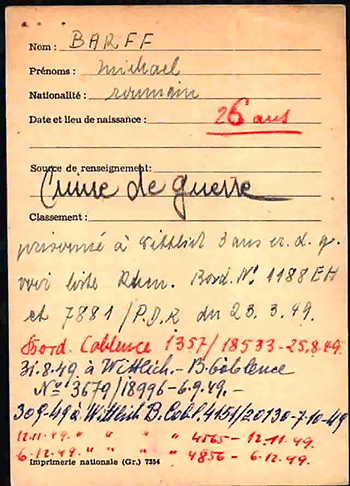 Nom: BARFF
Prénoms: Michael
Nationalité: roumain
Date et lieu de naissance: 26 ans
Source de renseignement:
Crime de guerre
Classement:
à Wittlich 3 ans cr. d. g.
voir liste Rhén. Bord. N° 1188 EH
et 7881 / P.D.R du 23. 3. 49.
Bord. Coblence 1357/18533-25.8.49.
31.8.49 à Wittlich.- B. Coblence
N° 3679/18996-6.9.49.-
30.9.49 à Wittlich B. Cobl. 4151/20130-7-10-49
12.11.49. " " " " 4565 - 12.11.49.
6.12.49. " " " " 4856 - 6.12.49.
Imprimerie nationale (Gr.) 7354